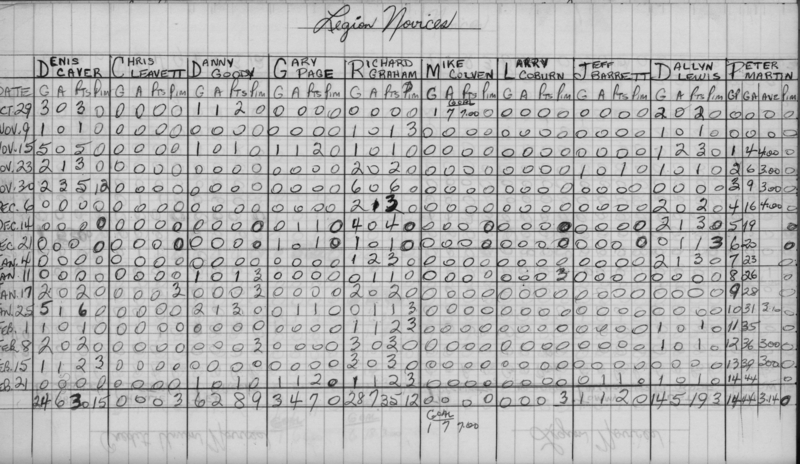 Legion Novices
DENIS CAVER CHRIS LEAVETT DANNY GOODY GARY PAGE RICHARD GRAHAM MIKE COLVEN LARRY COBURN JEFF BARRETT DALLYN LEWIS PETER MARTIN
DATE G A Pts Pim G A Pts Pim G A Pts Pim G A Pts Pim G A Pts Pim G A Pts Pim G A Pts Pim G A Pts Pim G A Pts Pim GP GA AVE Pim
OCT.29 3 0 3 0 0 0 0 0 1 1 2 0 0 0 0 0 0 0 0 0 GOAL 1 7 7.00 0 0 0 0 0 0 0 0 2 0 2 0 0 0 0 0
NOV.9 1 0 1 0 0 0 0 0 0 0 0 0 1 0 1 3 0 0 0 0 0 0 0 0 0 0 0 0 1 0 1 0 0 0 0 0
NOV.15 5 0 5 0 0 0 0 0 1 0 1 0 1 1 2 0 1 0 1 0 0 0 0 0 0 0 0 0 1 2 3 0 1 4 4.00
NOV.23 2 1 3 0 0 0 0 0 2 0 2 0 0 0 0 0 1 0 1 0 1 0 1 0 2 6 3.00
NOV.30 2 3 5 12 0 0 0 0 6 0 6 0 0 0 0 0 0 0 0 0 3 9 3.00
DEC.6 0 0 0 0 0 0 0 0 0 0 0 0 0 0 0 0 2 1 3 0 0 0 0 0 0 0 0 0 0 0 0 0 2 0 2 0 4 16 4.00
DEC.14 0 0 0 0 0 0 0 0 0 0 0 0 0 1 1 0 4 0 4 0 0 0 0 0 0 0 0 0 0 0 0 0 2 1 3 0 5 19 0
DEC.21 0 0 0 0 0 0 0 0 0 0 0 0 1 0 1 0 1 0 1 0 0 0 0 0 0 0 0 0 0 0 0 0 0 1 1 3 6 20 0
JAN.4 0 0 0 0 0 0 0 0 0 0 0 0 0 0 0 0 1 2 3 0 0 0 0 0 0 0 0 0 0 0 0 0 2 1 3 0 7 23 0
JAN.11 0 0 0 0 0 0 0 0 1 0 1 3 0 0 0 0 0 1 1 0 0 0 0 0 0 0 0 3 0 0 0 0 0 0 0 0 8 26 0
JAN.17 2 0 2 0 0 0 0 3 0 0 0 3 0 0 0 0 2 0 2 0 0 0 0 0 0 0 0 0 0 0 0 0 0 0 0 0 9 28 0
JAN.25 5 1 6 0 0 0 0 0 2 1 3 0 0 1 1 0 0 1 1 3 0 0 0 0 0 0 0 0 0 0 0 0 0 0 0 0 10 31 3.10
FEB.1 1 0 1 0 0 0 0 0 0 0 0 0 0 0 0 0 1 1 2 3 0 0 0 0 0 0 0 0 0 0 0 0 1 0 1 0 11 35
FEB.8 2 0 2 0 0 0 0 0 0 0 0 3 0 0 0 0 3 0 3 0 0 0 0 0 0 0 0 0 0 0 0 0 1 0 1 0 12 36 3.00
FEB.15 1 1 2 3 0 0 0 0 0 0 0 0 0 0 0 0 3 0 3 0 0 0 0 0 0 0 0 0 0 0 0 0 0 0 0 0 13 39 3.00
FEB.21 0 0 0 0 0 0 0 0 1 0 1 0 1 1 2 0 1 1 2 3 0 0 0 0 0 0 0 0 0 1 1 0 1 0 1 0 14 44
24 6 30 15 0 0 0 3 6 2 8 9 3 4 7 0 28 7 35 12 0 0 0 0 0 0 0 3 1 1 2 0 14 5 19 3 14 44 3.14 0
GOAL
1 7 7.00